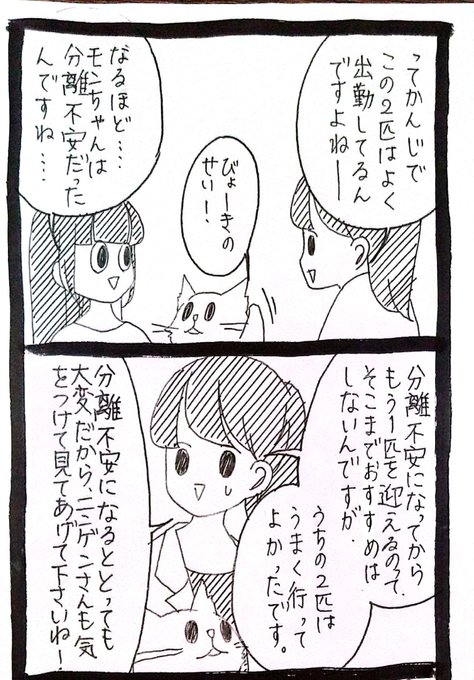 ってかんじで
この2匹はよく
出勤してるん
ですよねー
びょーきの
せい!、
なるほど....
モンちゃんは
分離不安だった
んですね....
分離不安になってから
もう1匹を迎えるのって、
そこまでおすすめは
しないんですが、
うちの2匹は
うまく行って
よかったです。
分離不安になるととっても
大変だから、ニンゲンさんも気
をつけて見てあげて下さいねー!